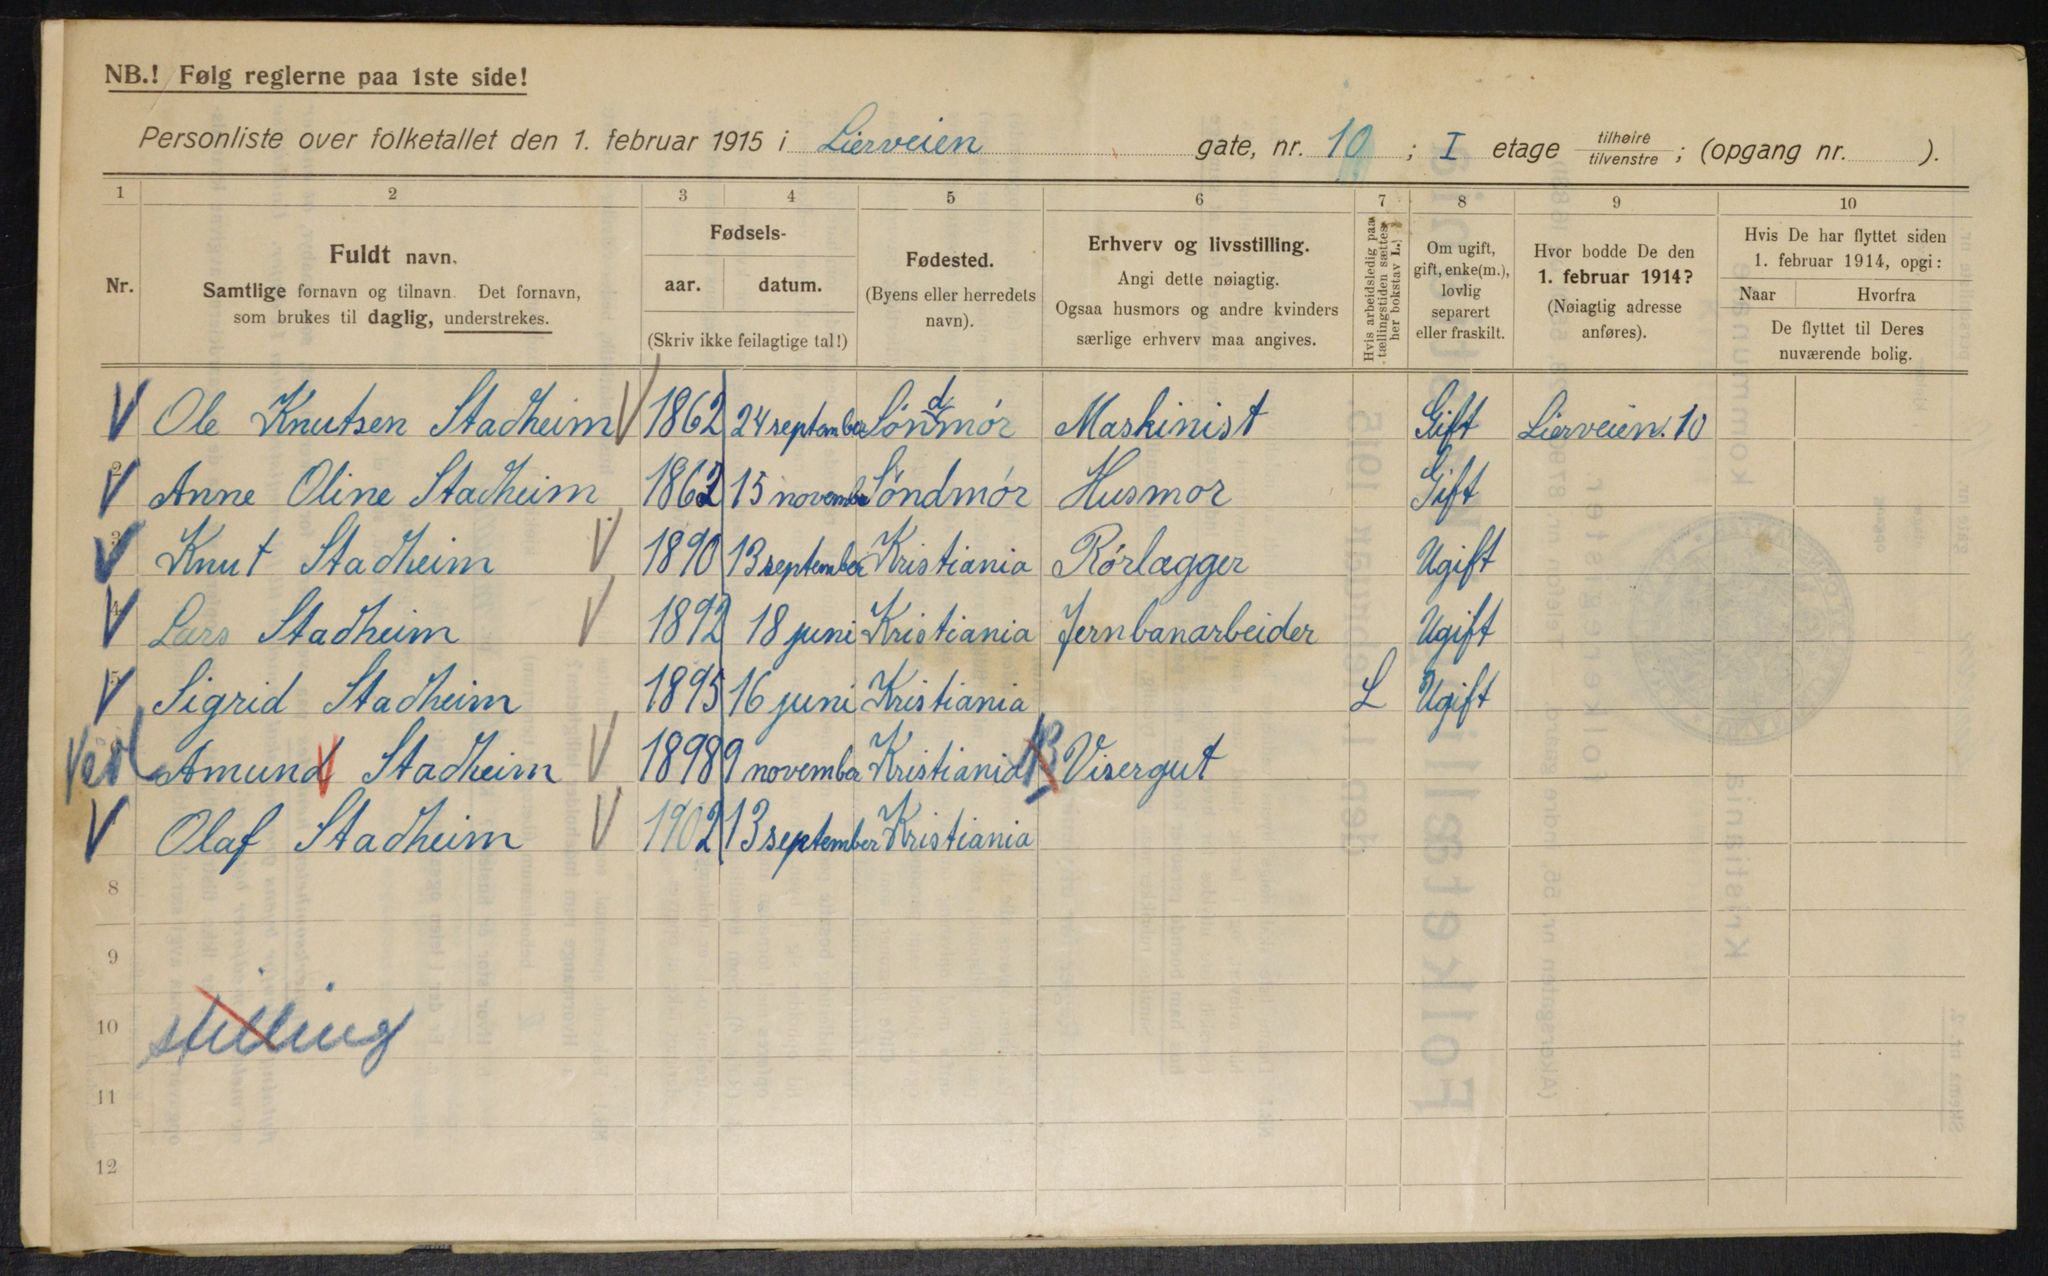 NB.! Følg reglerne paa 1ste side!
Personliste over folketallet den 1. februar 1915 i Lierveien gate, nr. 10 ; I etage tilhøire tilvenstre ; (opgang nr. ).
1 2 3 4 5 6 7 8 9 10
Nr.
Fuldt navn.
Samtlige fornavn og tilnavn. Det fornavn,
som brukes til daglig, understrekes.
Fødsels-
aar. datum.
(Skriv ikke feilagtige tal!)
Fødested.
(Byens eller herredets
navn).
Erhverv og livsstilling.
Angi dette nøiagtig.
Ogsaa husmors og andre kvinders
særlige erhverv maa angives.
Hvis arbeidsledig paa
tællingstiden sættes
her bokstav L.
Om ugift,
gift, enke(m.),
lovlig
separert
eller fraskilt.
Hvor bodde De den
1. februar 1914?
(Nøiagtig adresse
anføres).
Hvis De har flyttet siden
1. februar 1914, opgi:
Naar Hvorfra
De flyttet til Deres
nuværende bolig.
Ole Knutsen Stadheim 1862 24 september Søndmør Maskinist Gift Lierveien. 10
2 Anne Oline Stadheim 1862 15 november Søndmør Husmor Gift
3 Knut Stadheim 1890 13 september Kristiania Rørlægger Ugift
4 Lars Stadheim 1892 18 juni Kristiania Jernbanarbeider Ugift
5 Sigrid Stadheim 1895 16 juni Kristiania L Ugift
Amund Stadheim 1898 9 november Kristiania Visergut
Olaf Stadheim 1902 13 september Kristiania
8
9
10 stilling
11
12